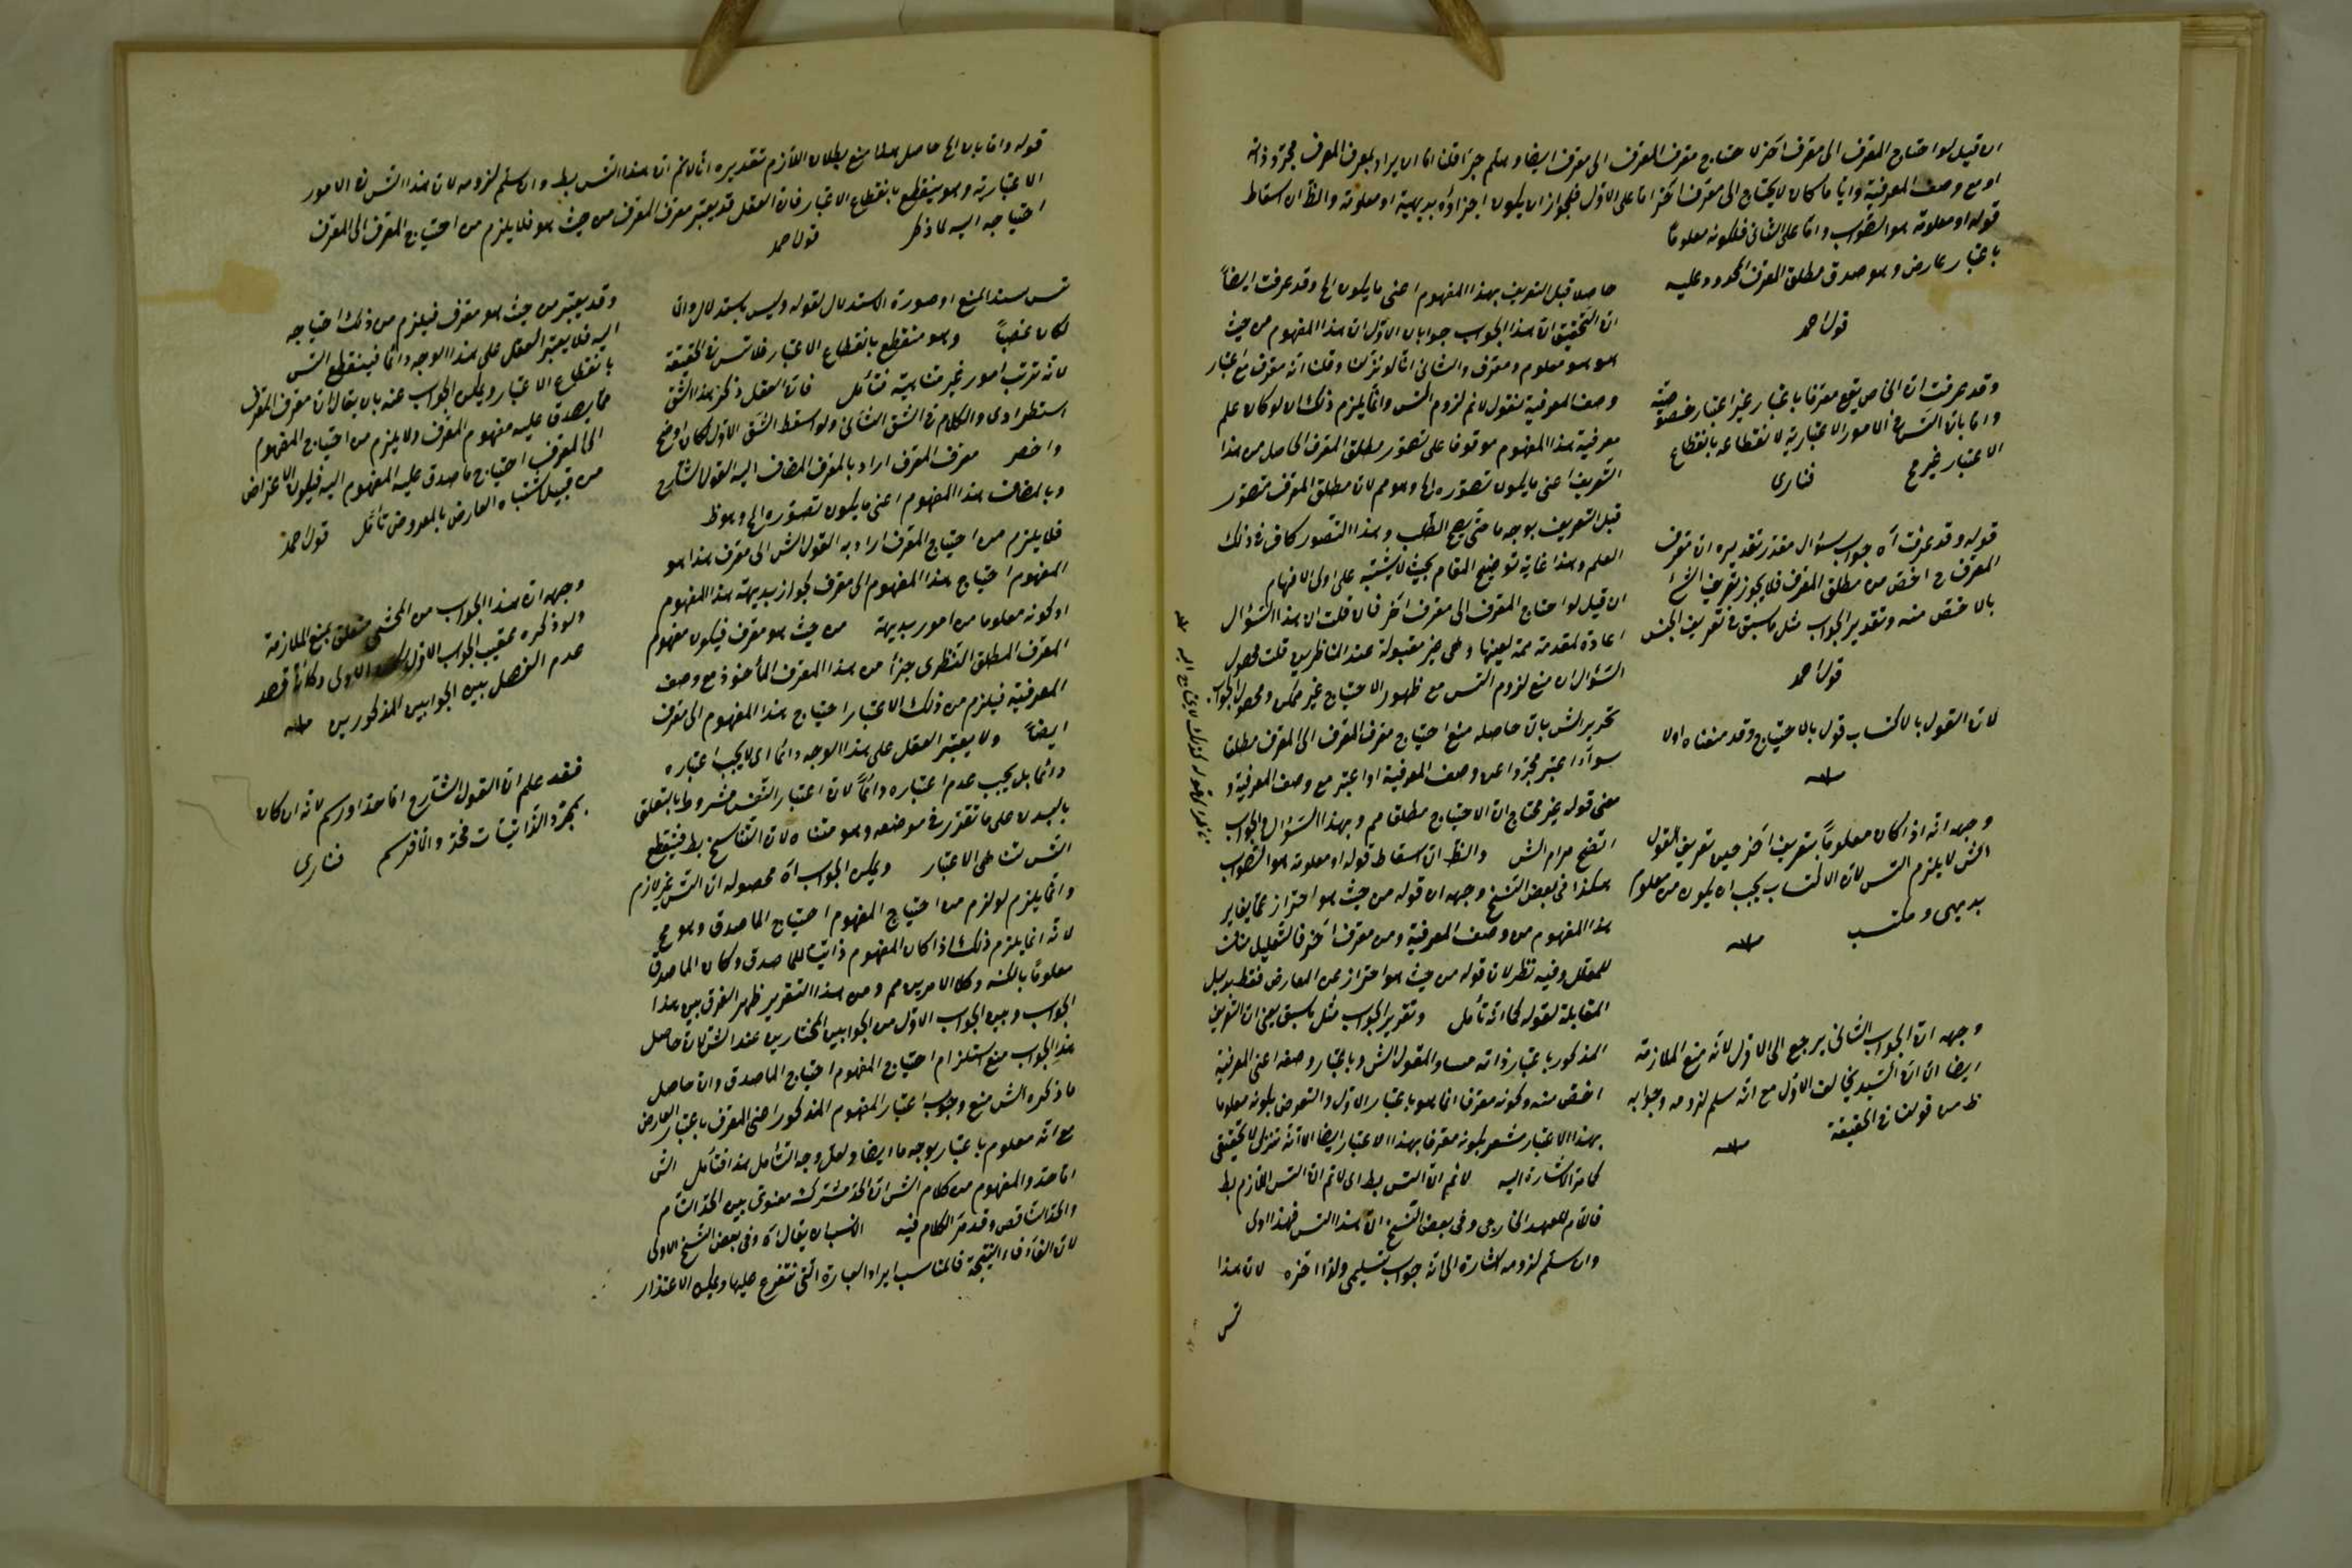 ان قيل لو احتاج المعرف الى معرف آخر لاحتاج معرف المعرف الى معرف ايضا وهلم جرا قلنا اما ان يراد بمعرف المعرف مجرد ذاته
او مع وصف المعرفية وايا ما كان لا يحتاج الى معرف آخر اما على الاول فلجواز ان يكون اجزاؤه بديهية او معلومة والظ ان اسقاط
قوله او معلومة هو الصواب واما على الثانى فلكونه معلوما
باعتبار عارض وهو صدق مطلق المعرف المحدود عليه
قول احمد
وقد عرفت ان الخاص يقع معرفا باعتبار غير اعتبار خصوصيته
واما بان التس فى الامور الاعتبارية لانقطاعه بانقطاع
الاعتبار غير مح فنارى
قوله وقد عرفت آه جواب سؤال مقدر تقديره ان معرف
المعرف ح اخص من مطلق المعرف فلا يجوز تعريف الشئ
بالاخص منه وتقدير الجواب مثل ما سبق فى تعريف الجنس
قول احمد
لان القول بالاكتساب قول بالاحتياج وقد منعناه اولا
منه
وجهه انه اذا كان معلوما بتعريف آخر حين تعريف القول
الش لا يلزم التس لان الاكتساب يجب ان يكون من معلوم
بديهى ومكتسب منه
وجهه ان الجواب الثانى يرجع الى الاول لانه منع الملازمة
ايضا الا ان السيد يخالف الاول مع انه سلم لزومه وجوابه
ظ من قولنا فى الحقيقة منه
حاصلا قبل التعريف بهذا المفهوم اعنى ما يكون الخ وقد عرفت ايضا
ان التحقيق ان هذا الجواب جوابان الاول ان هذا المفهوم من حيث
هو هو معلوم ومعرف والثانى انا لو نزلنا وقلنا انه معرف مع اعتبار
وصف المعرفية نقول لا نم لزوم التس وانما يلزم ذلك ان لو كان علم
معرفية هذا المفهوم موقوفا على تصور مطلق المعرف الحاصل من هذا
التعريف اعنى ما يكون تصوره الخ وهو مم لان مطلق المعرف متصور
قبل التعريف بوجه ما حتى يصح الطلب وهذا التصور كاف فى ذلك
العلم وهذا غاية توضيح المقام بحيث لا يشتبه على اولى الافهام
ان قيل لو احتاج المعرف الى معرف آخر فان قلت ان هذا السؤال
اعادة لمقدمة ممة بعينها وهى غير مقبولة عند الناظرين قلت محصول
السؤال ان منع لزوم التس مع ظهور الاحتياج غير ممكن ومحصول الجواب
تحرير الش بان حاصله منع احتياج معرف المعرف الى المعرف مطلقا
سواء اعتبر مجردا عن وصف المعرفية او اعتبر مع وصف المعرفية و
معنى قوله غير محتاج ان الاحتياج مطلقا مم وبهذا السؤال والجواب
اتضح مرام الش والظ ان اسقاط قوله او معلومة هو الصواب
هكذا فى بعض النسخ وجهه ان قوله من حيث هو احتراز عما يغاير
هذا المفهوم من وصف المعرفية ومن معرف آخر فالتعليل مناف
للمعلل وفيه نظر لان قوله من حيث هو احتراز عن العارض فقط بدليل
المقابلة لقوله كما انه تأمل وتقرير الجواب مثل ما سبق يعنى ان التعريف
المذكور باعتبار ذاته مساو للقول الش وباعتبار وصفه اعنى المعرفية
اخص منه وكونه معرفا انما هو باعتبار الاول والتعرض بكونه معلوما
بهذا الاعتبار مشعر بكونه معرفا بهذا الاعتبار ايضا الا انه تنزل لا تحقيقى
كما مر الاشارة اليه لا نم ان التس بط اى لا نم ان التس اللازم بط
فاللام للعهد الخارجى وفى بعض النسخ ان هذا التس فهذا اولى
وان سلم لزومه اشارة الى انه جواب تسليمى ولذا اخره لان هذا
تس
قوله واما بان الخ حاصل هذا منع بطلان اللازم تقديره انا لا نم ان هذا التس بط وان سلم لزومه لان هذا التس فى الامور
الاعتبارية وهو ينقطع بانقطاع الاعتبار فان العقل قد يعتبر معرف المعرف من حيث هو فلا يلزم من احتياج المعرف الى المعرف
احتياجه اليه لما ذكر قول احمد
تس سند المنع او صورة الاستدلال لقوله وليس باستدلال والا
لكان غصبا وهو منقطع بانقطاع الاعتبار فلا تس فى الحقيقة
لانه ترتب امور غير متناهية فتأمل فان العقل ذكر هذا الشق
استطرادى والكلام فى الشق الثانى ولو اسقط الشق الاول لكان اوضح
واخصر معرف المعرف اراد بالمعرف المضاف اليه القول الشارح
وبالمضاف هذا المفهوم اعنى ما يكون تصوره الخ وهو ظ
فلا يلزم من احتياج المعرف اراد به القول الش الى معرف هذا هو
المفهوم احتياج هذا المفهوم الى معرف لجواز بديهية هذا المفهوم
او كونه معلوما من امور بديهية من حيث هو معرف فيكون مفهوم
المعرف المطلق النظرى جزأ من هذا المعرف المأخوذ مع وصف
المعرفية فيلزم من ذلك الاعتبار احتياج هذا المفهوم الى معرف
ايضا ولا يعتبر العقل على هذا الوجه دائما اى لا يجب اعتباره
دائما بل يجب عدم اعتباره دائما لان اعتبار النفس مشروط بالتعلق
بالبدن على ما تقرر فى موضعه وهو متناه لان التناسخ بط فينقطع
التس تناهى الاعتبار ويمكن الجواب آه محصوله ان التس غير لازم
وانما يلزم لو لزم من احتياج المفهوم احتياج الماصدق وهو مح
لانه انما يلزم ذلك اذا كان المفهوم ذاتيا للماصدق وكان الماصدق
معلوما بالكنه وكلا الامرين مم ومن هذا التقرير ظهر الفرق بين هذا
الجواب وبين الجواب الاول من الجوابين المختارين عند الش لان حاصل
هذا الجواب منع استلزام احتياج المفهوم احتياج الماصدق وان حاصل
ما ذكره الش منع وجوب اعتبار المفهوم المذكور اعنى المعرف باعتبار العارض
مع انه معلوم باعتبار بوجه ما ايضا ولعل وجه التأمل هذا فتأمل الش
اما حد والمفهوم من كلام الش ان الحد مشترك معنوى بين الحد التام
والحد الناقص وقد مر الكلام فيه الانسب ان يقال آه وفى بعض النسخ الاولى
لان الفاء فاء النتيجة فالمناسب ايراد العبارة التى تتفرع عليها ويمكن الاعتذار
وقد يعتبر من حيث هو معرف فيلزم من ذلك احتياجه
اليه فلا يعتبر العقل على هذا الوجه دائما فينقطع التس
بانقطاع الاعتبار ويمكن الجواب عنه بان يقال ان معرف المعرف
مما يصدق عليه مفهوم المعرف ولا يلزم من احتياج المفهوم
الى المعرف احتياج ما صدق عليه المفهوم اليه فيكون الاعتراض
من قبيل اشتباه العارض بالمعروض تأمل قول احمد
وجهه ان هذا الجواب من المحشى متعلق بمنع الملازمة
ولو ذكره عقيب الجواب الاول لكان اولى وكانه قصد
عدم الفصل بين الجوابين المذكورين منه
فقد علم ان القول الشارح اما حد او رسم لانه ان كان
بمجرد الذاتيات فحد والا فرسم فنارى